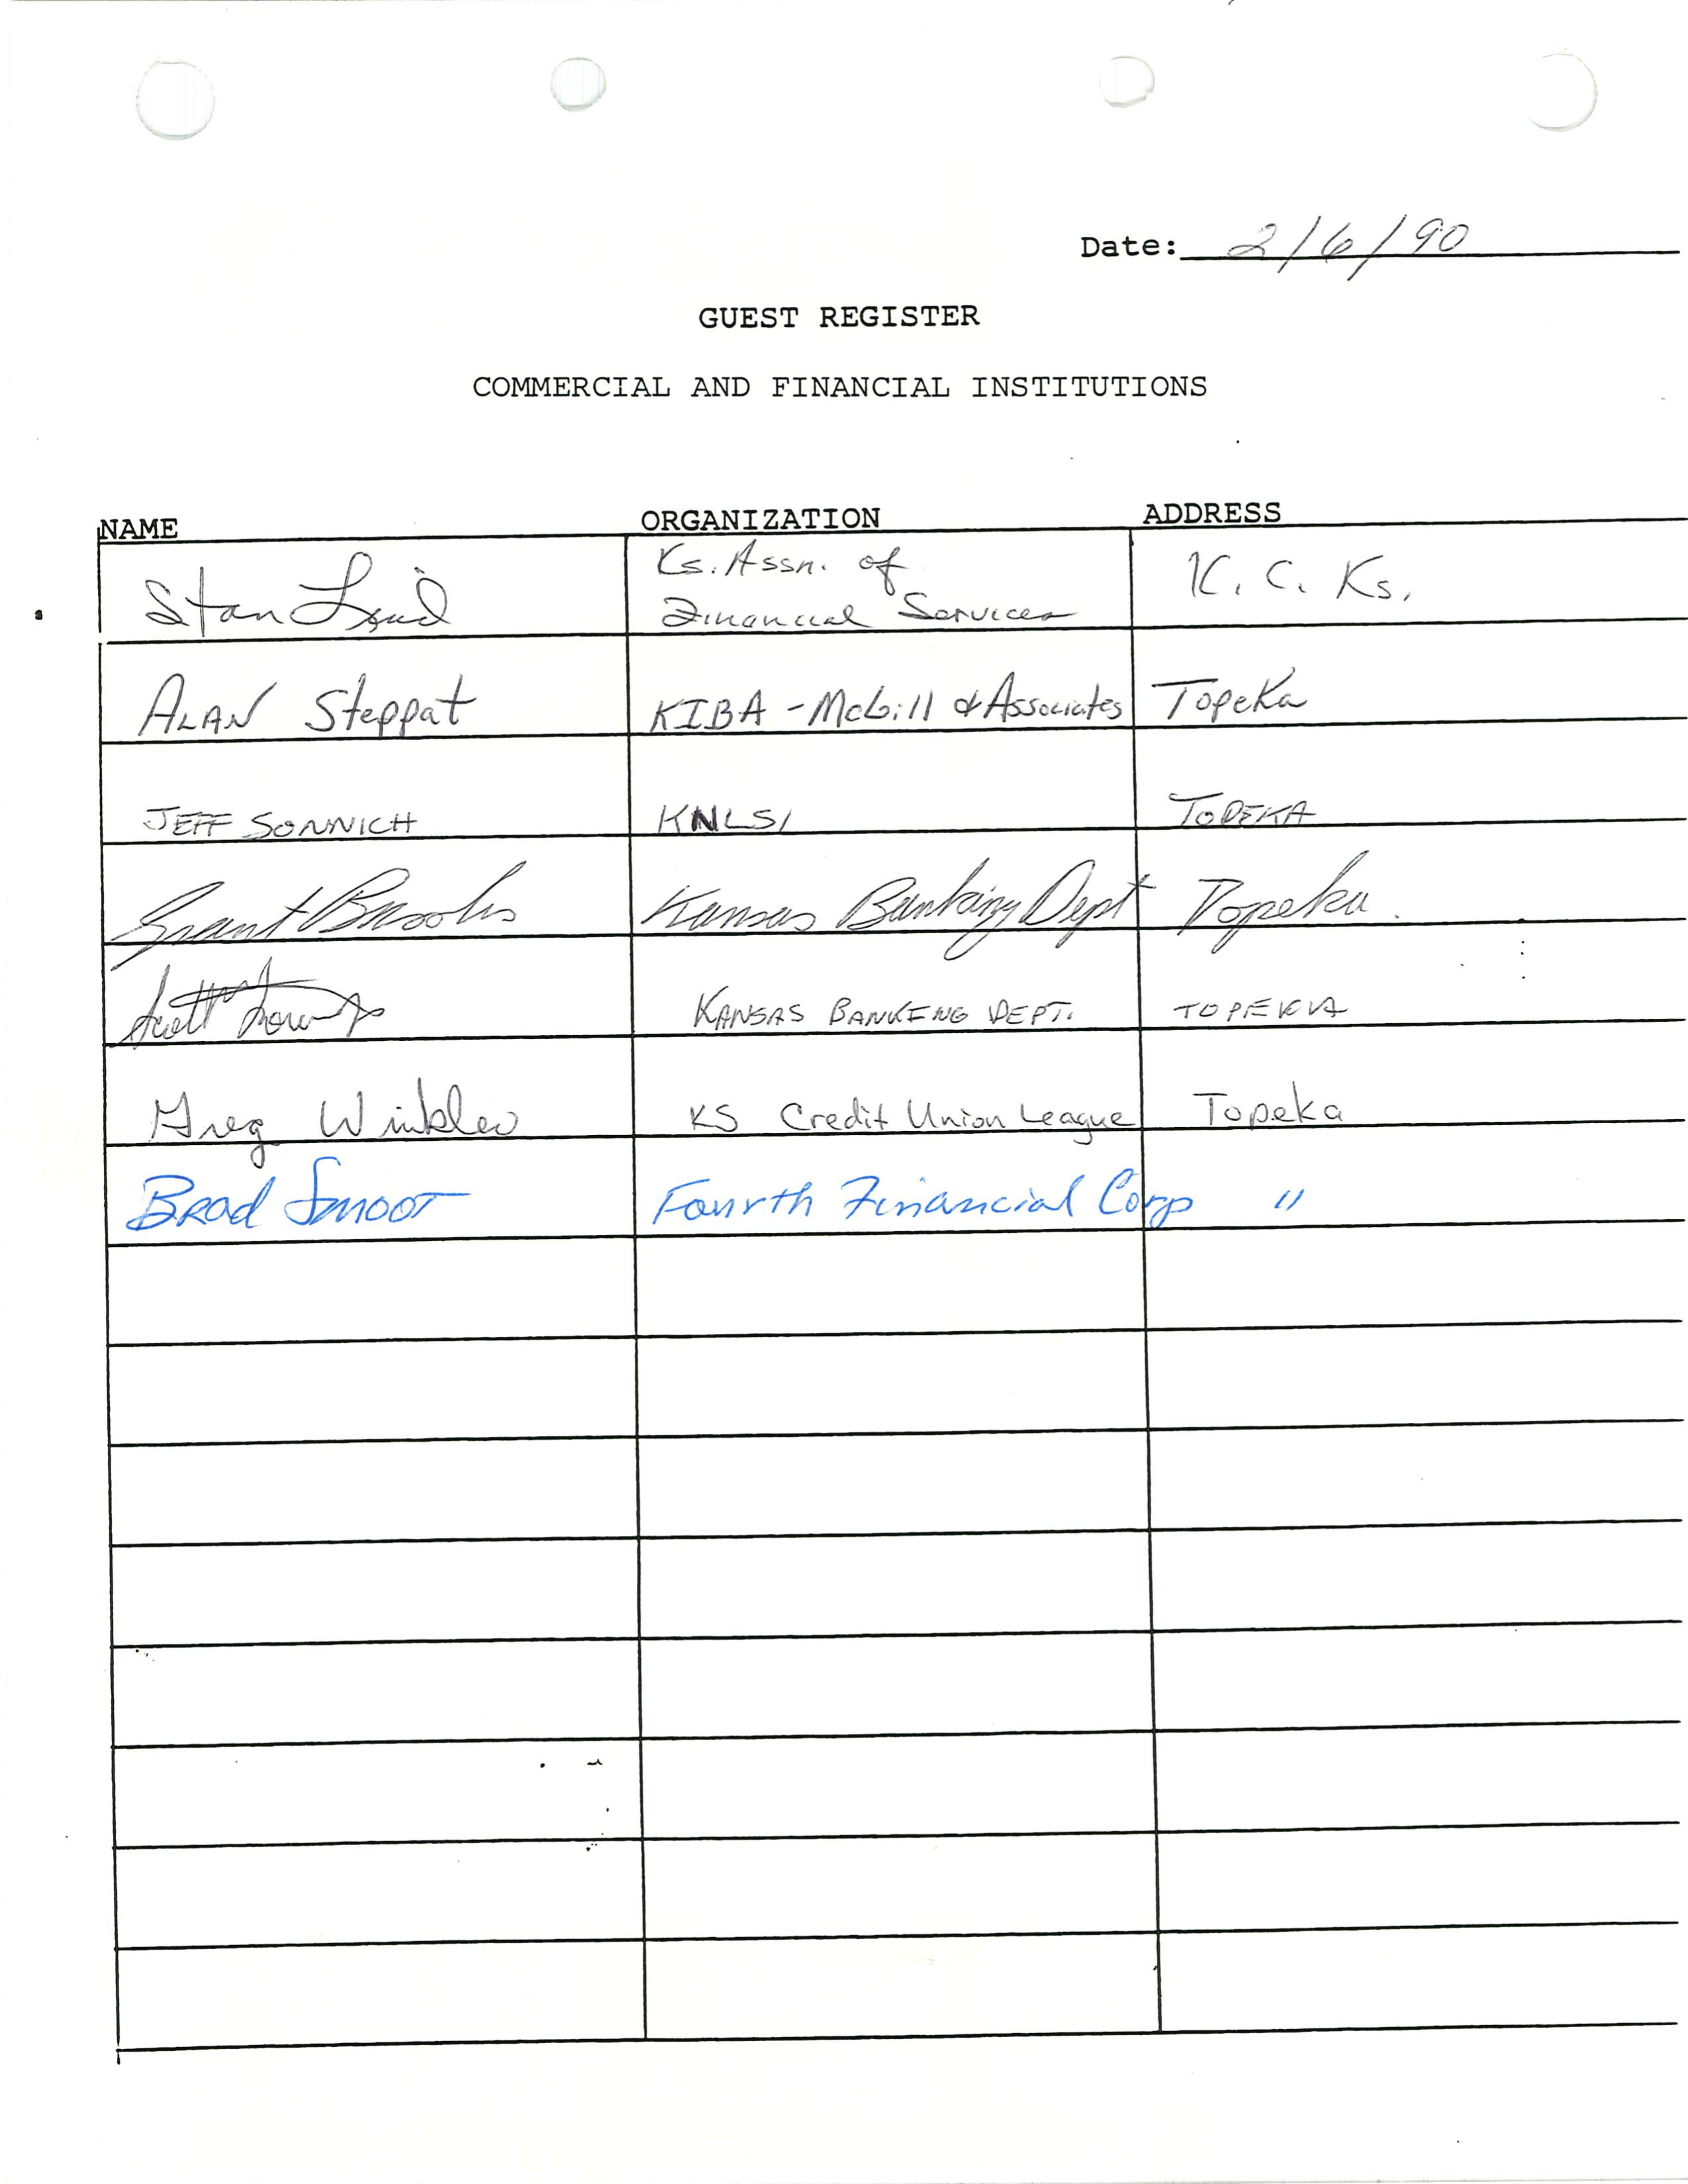 Date: 2/6/90
GUEST REGISTER
COMMERCIAL AND FINANCIAL INSTITUTIONS
NAME ORGANIZATION ADDRESS
Stan Lind Ks. Assn. of Financial Services K. C. Ks.
ALAN Steppat KIBA - McGill & Associates Topeka
JEFF SONNICH KNLSI TOPEKA
Grant Brooks Kansas Banking Dept Topeka
Scott KANSAS BANKING DEPT. TOPEKA
Greg Winkler KS Credit Union League Topeka
BRad SmooT Fourth Financial Corp "